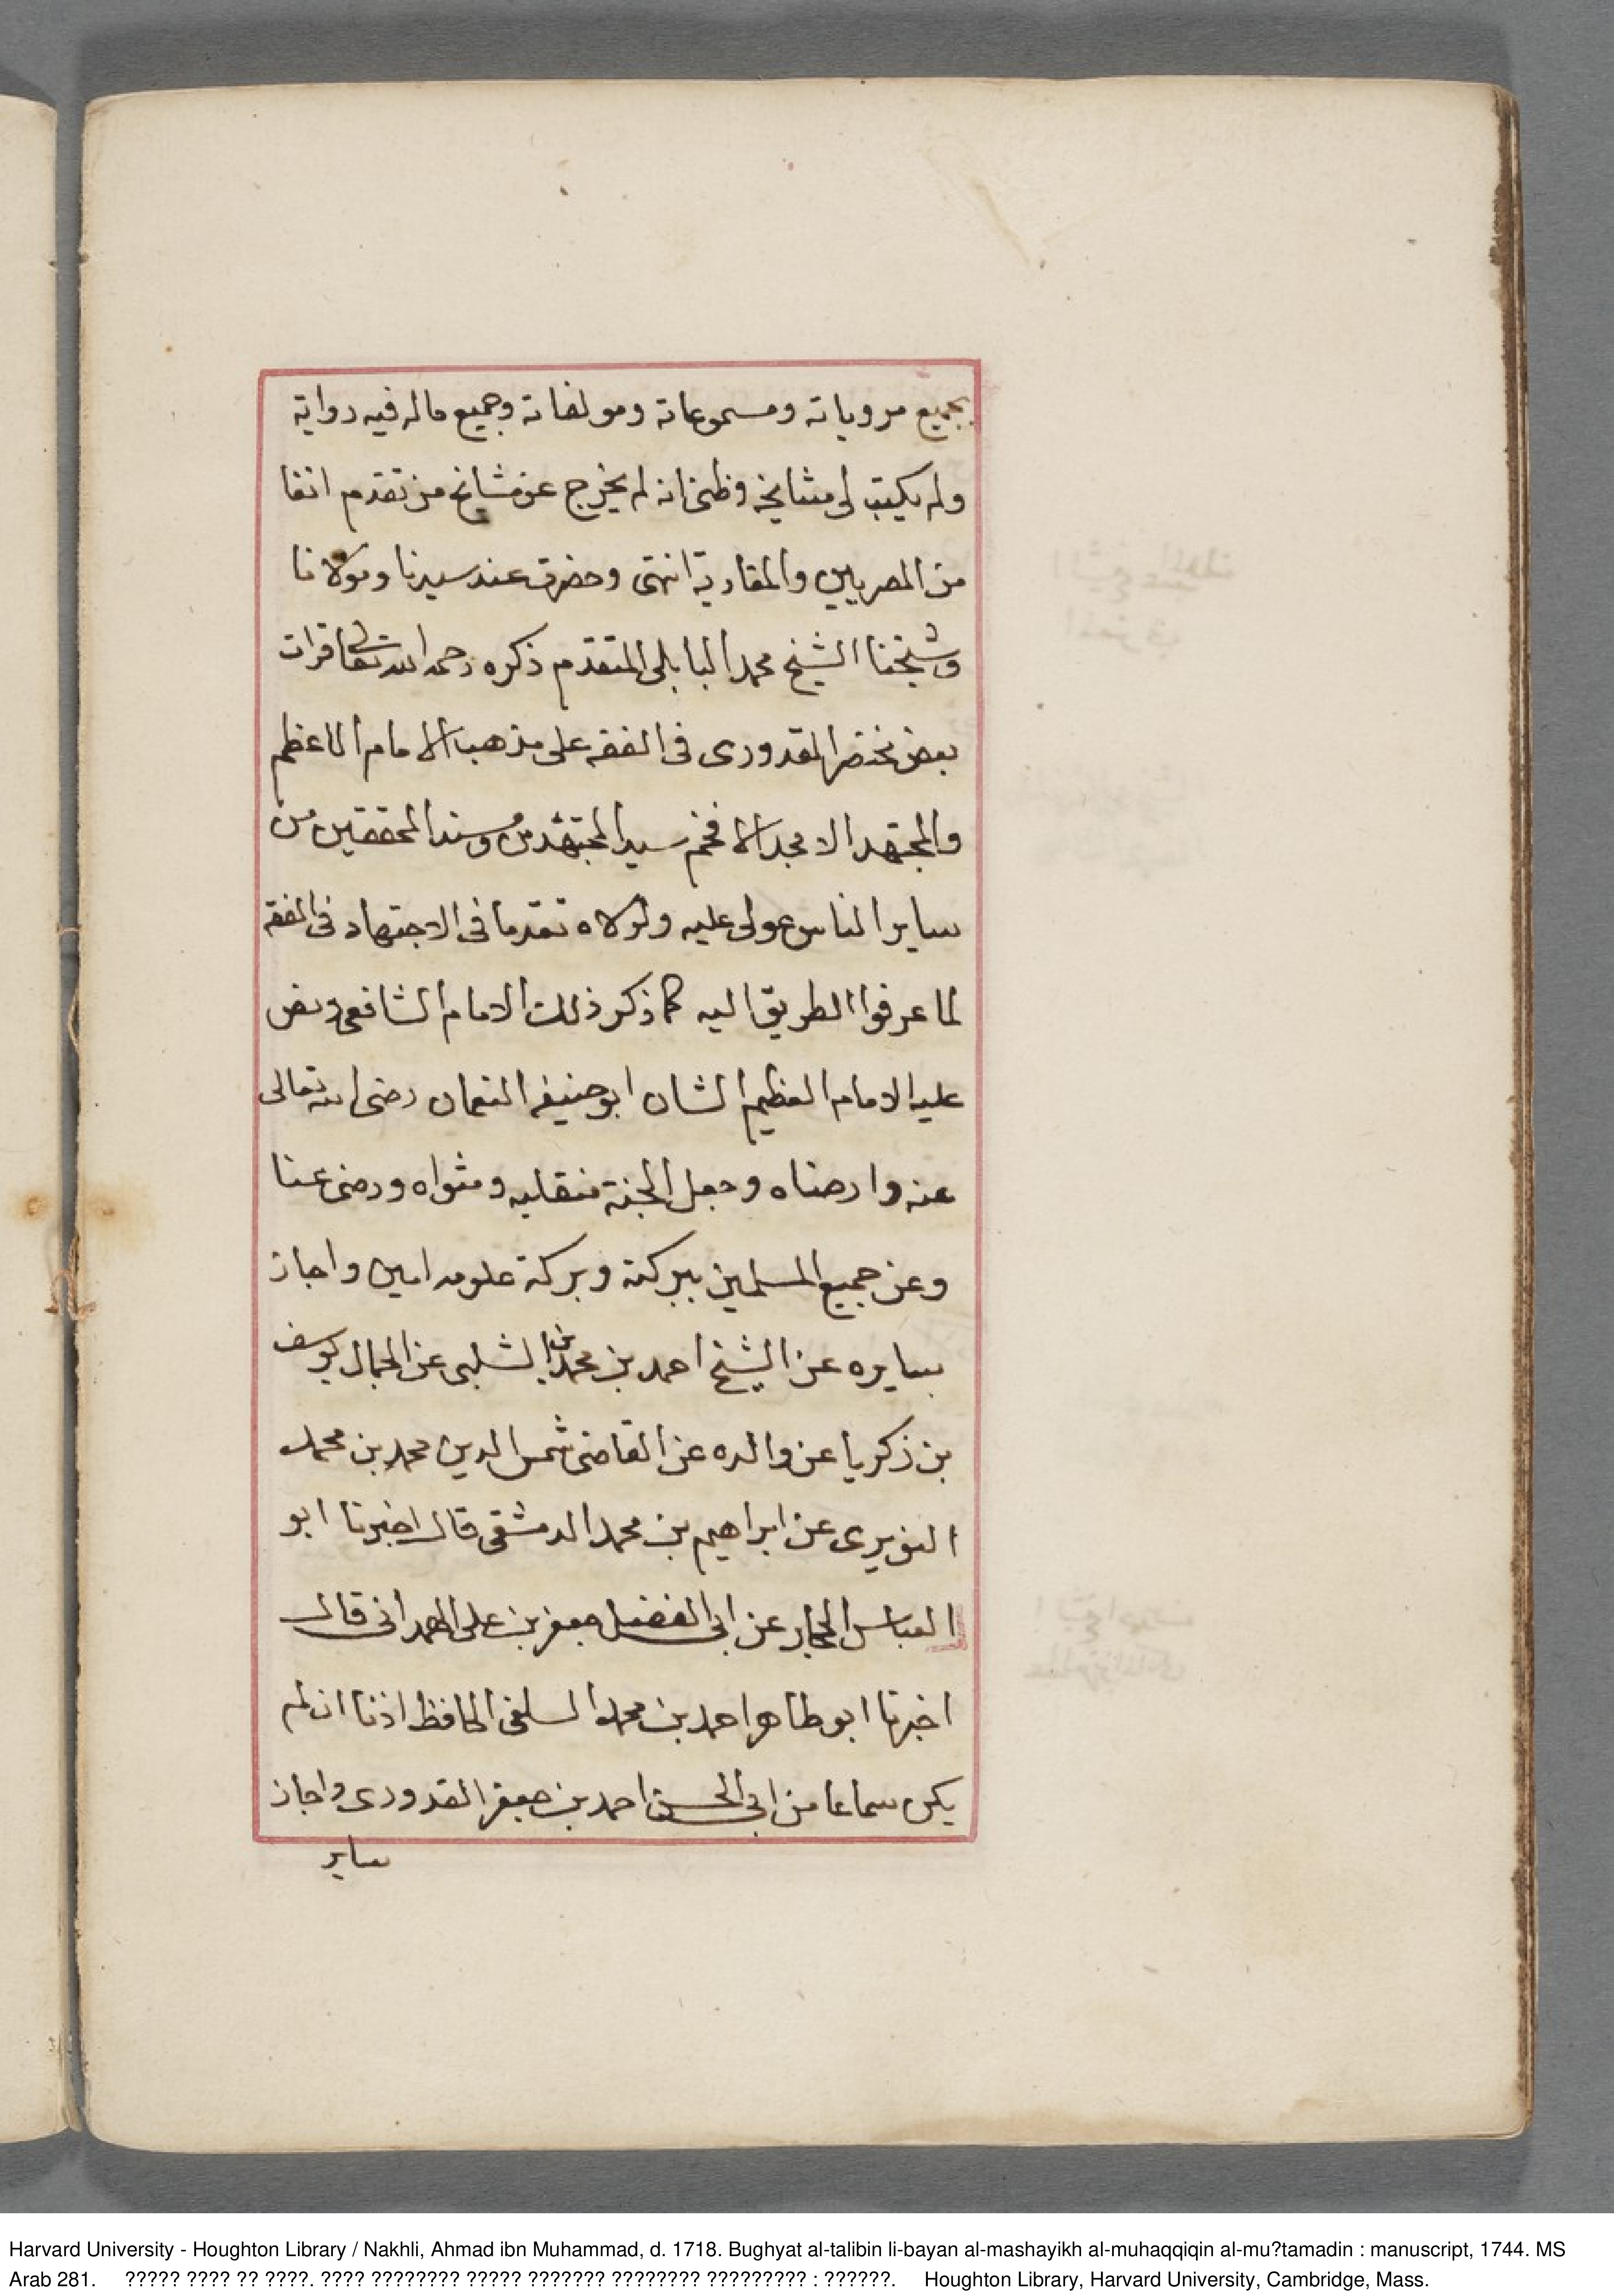 بجميع مروياته ومسموعاته ومولفاته وجميع ماله فيه رواية
ولم يكتب لى مشايخه وظنى انه لم يخرج عن مشايخ من تقدم انفا
من المصريين والمغاربة انتهى وحضرت عند سيدنا ومولانا
وشيخنا الشيخ محمد البابلى المتقدم ذكره رحمه الله تعالى قرات
بعض مختصر القدورى فى الفقه على مذهب الامام الاعظم
والمجتهد الامجد الافخم سيد المجتهدين وسند المحققين من
ساير الناس عولى عليه ولولاه تقدما فى الاجتهاد فى الفقه
لما عرفوا الطريق اليه كما ذكر ذلك الامام الشافعى ونص
عليه الامام العظيم الشان ابو حنيفه النعمان رضى الله تعالى
عنه وارضاه وجعل الجنة منقلبه ومثواه ورضى عنا
وعن جميع المسلمين ببركته وبركة علومه امين واجاز
بسايره عن الشيخ احمد بن محمد بن الشلبى عن الجمال يوسف
بن زكريا عن والده عن القاضى شمس الدين محمد بن محمد
النويرى عن ابراهيم بن محمد الدمشقى قال اخبرنا ابو
العباس الحجار عن ابى الفضل جعفر بن على الهمدانى قال
اخبرنا ابو طاهر احمد بن محمد السلفى الحافظ اذنا ان لم
يكن سماعا من ابى الحسن احمد بن جعفر القدورى واجاز
ساير
Harvard University - Houghton Library / Nakhli, Ahmad ibn Muhammad, d. 1718. Bughyat al-talibin li-bayan al-mashayikh al-muhaqqiqin al-mu?tamadin : manuscript, 1744. MS
Arab 281. ????? ???? ?? ????. ???? ???????? ????? ??????? ???????? ????????? : ??????. Houghton Library, Harvard University, Cambridge, Mass.